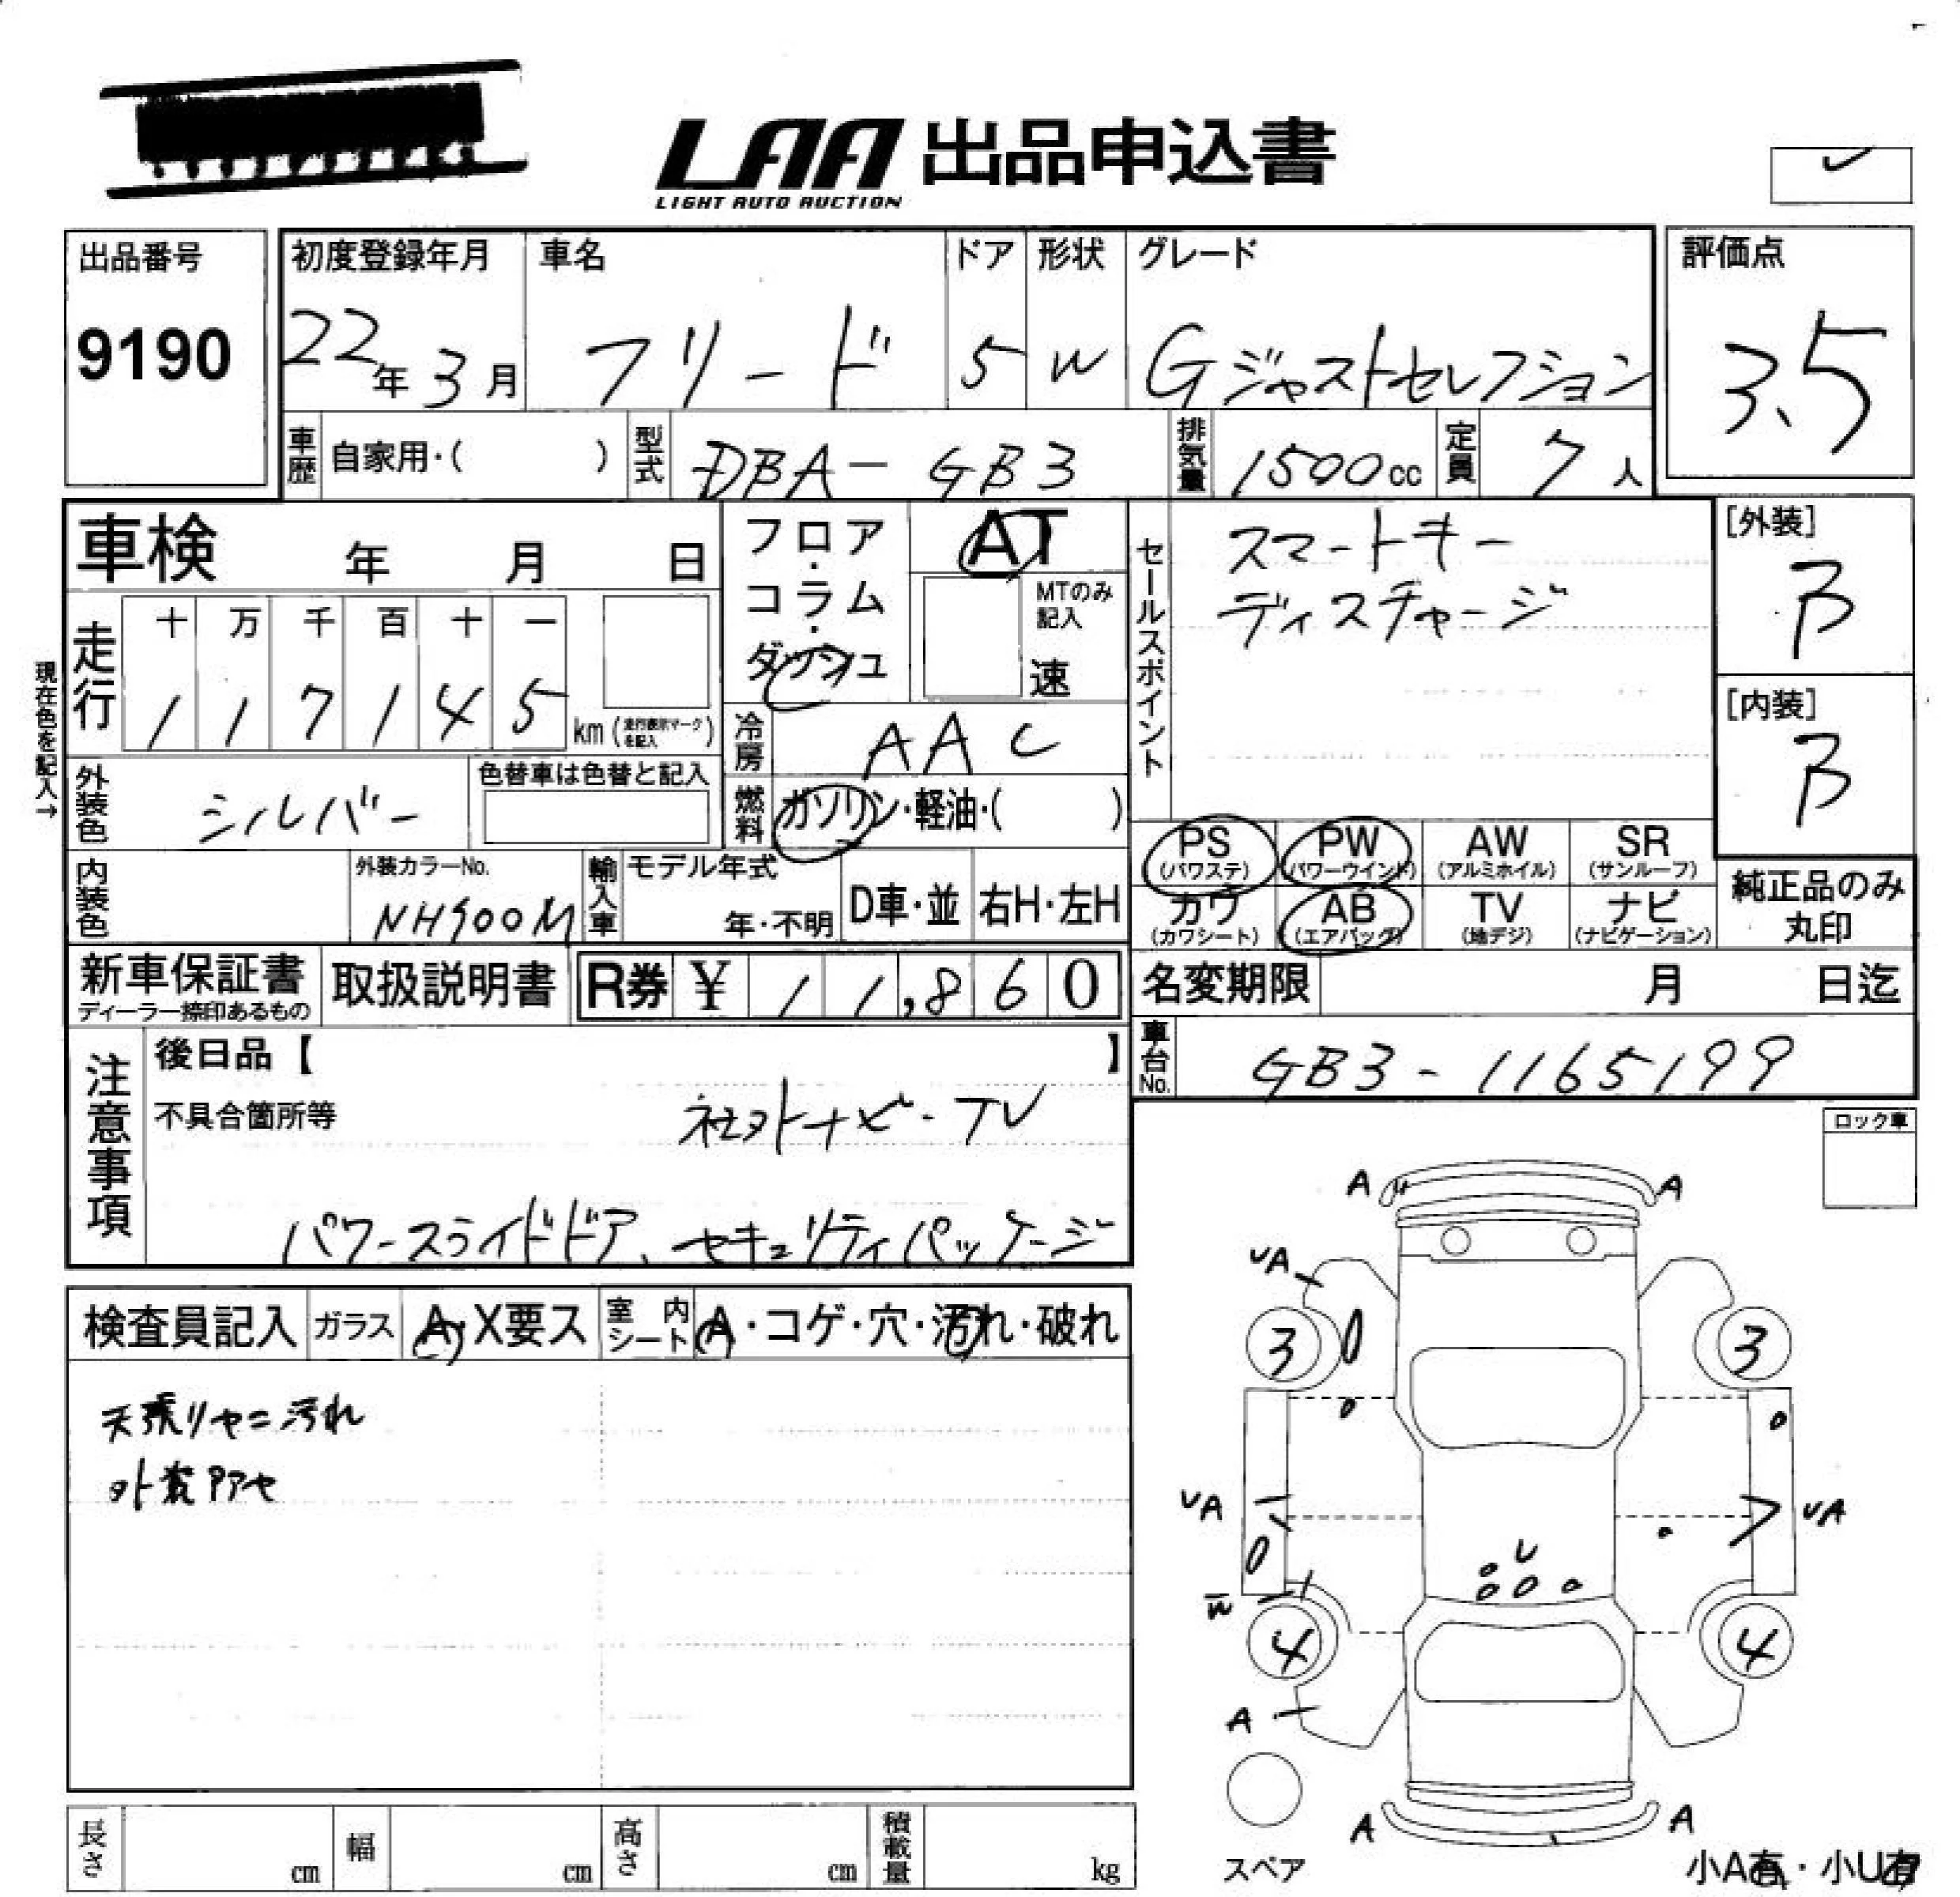 LAA 出品申込書
LIGHT AUTO AUCTION
出品番号
9190
初度登録年月
22年3月
車名
フリード
ドア
5
形状
W
グレード
Gジャストセレクション
評価点
3.5
車歴 自家用・( )
型式 DBA-GB3
排気量 1500cc
定員 7人
車検 年 月 日
フロア・コラム・ダッシュ
AT
MTのみ記入
速
セールスポイント
スマートキー
ディスチャージ
[外装]
B
[内装]
B
現在色を記入→
走行
十 万 千 百 十 一
1 1 7 1 4 5 km (走行表示マークを記入)
冷房 AAC
外装色 シルバー
色替車は色替と記入
燃料 ガソリン・軽油・( )
PS (パワステ)
PW (パワーウインド)
AW (アルミホイル)
SR (サンルーフ)
カワ (カワシート)
AB (エアバッグ)
TV (地デジ)
ナビ (ナビゲーション)
純正品のみ丸印
内装色
外装カラーNo.
NH700M
輸入車
モデル年式
年・不明
D車・並
右H・左H
新車保証書
ディーラー捺印あるもの
取扱説明書
R券 ¥ 11,860
名変期限 月 日迄
車台No. GB3-1165199
注意事項
後日品【 】
不具合箇所等
社外ナビ・TV
パワースライドドア、セキュリティパッケージ
ロック車
検査員記入
ガラス A・X要ス
室内シート A・コゲ・穴・汚れ・破れ
天張りヤニ汚れ
外装
A A
UA
3 3
UA UA
W
4 4
A
A A
スペア
小A有・小U有
長さ cm
幅 cm
高さ cm
積載量 kg